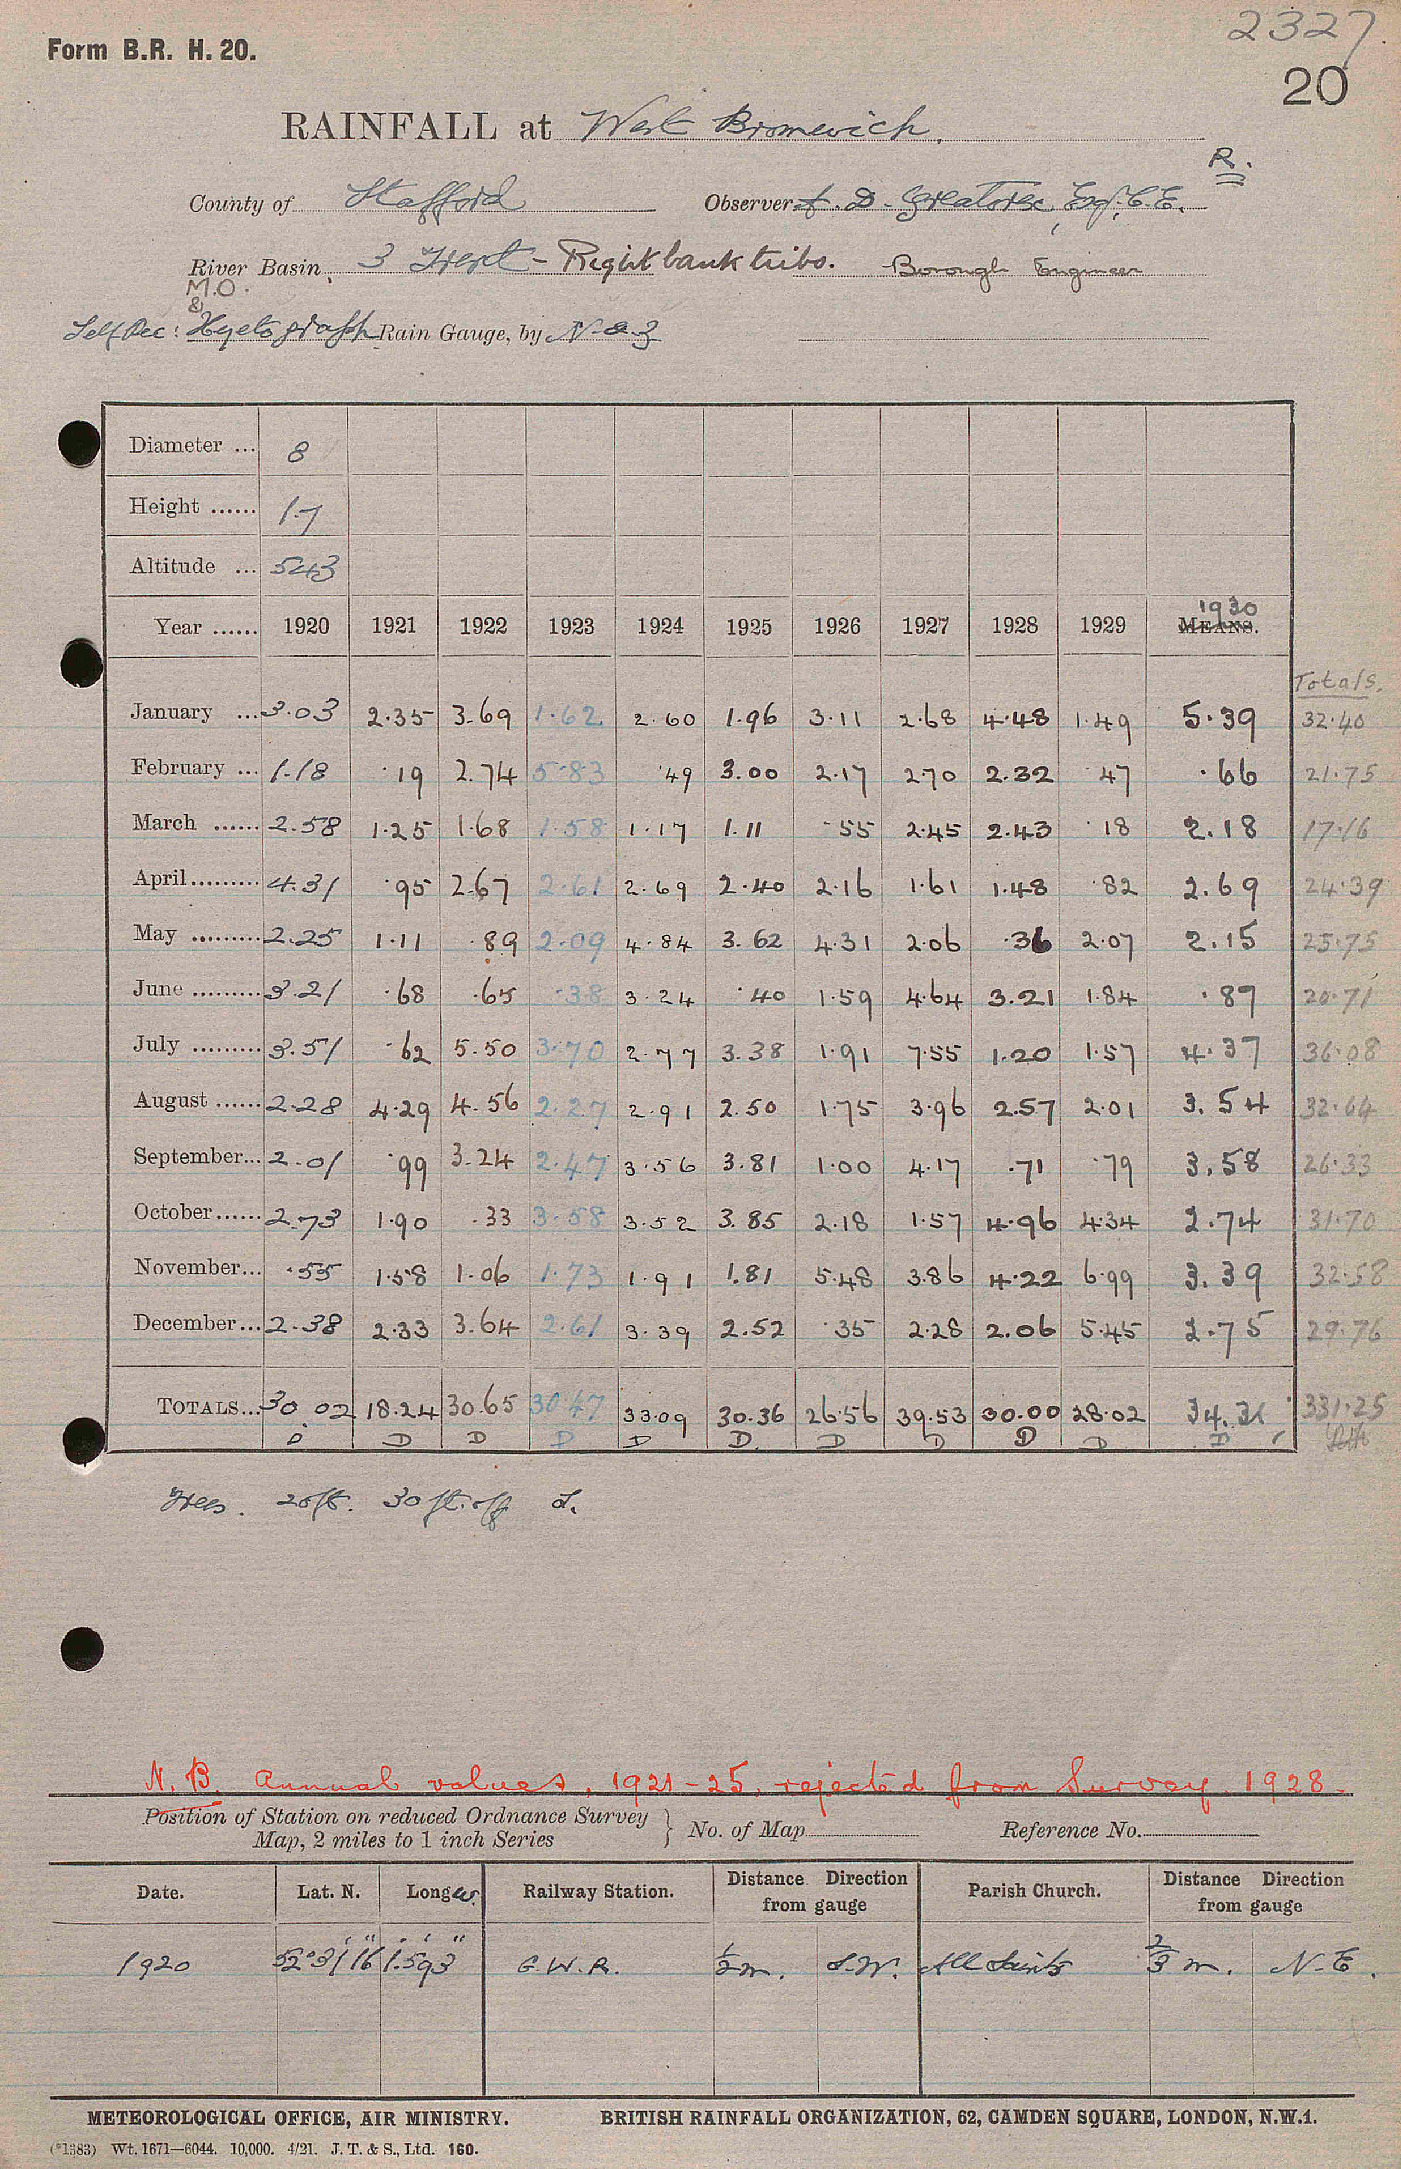 2327
Form B.R. H. 20.
20
RAINFALL at West Bromwich.
R.
County of Stafford Observer A. D. Greatorex, Esq., C.E.
River Basin, 3 Trent - Right bank tribs. Borough Engineer
M.O.
&
Self Rec: Hyetograph Rain Gauge, by N & Z
Diameter ... 8
Height ...... 1.7
Altitude ... 543
Year ...... 1920 1921 1922 1923 1924 1925 1926 1927 1928 1929 MEANS. 1930
Totals.
January ... 3.03 2.35 3.69 1.62 2.60 1.96 3.11 2.68 4.48 1.49 5.39 32.40
February ... 1.18 .19 2.74 5.83 .49 3.00 2.17 2.70 2.32 .47 .66 21.75
March ...... 2.58 1.25 1.68 1.58 1.17 1.11 .55 2.45 2.43 .18 2.18 17.16
April......... 4.31 .95 2.67 2.61 2.69 2.40 2.16 1.61 1.48 .82 2.69 24.39
May ......... 2.25 1.11 .89 2.09 4.84 3.62 4.31 2.06 .36 2.07 2.15 25.75
June ......... 3.21 .68 .65 .38 3.24 .40 1.59 4.64 3.21 1.84 .87 20.71
July ......... 3.51 .62 5.50 3.70 2.77 3.38 1.91 7.55 1.20 1.57 4.37 36.08
August ...... 2.28 4.29 4.56 2.27 2.91 2.50 1.75 3.96 2.57 2.01 3.54 32.64
September... 2.01 .99 3.24 2.47 3.56 3.81 1.00 4.17 .71 .79 3.58 26.33
October...... 2.73 1.90 .33 3.58 3.52 3.85 2.18 1.57 4.96 4.34 2.74 31.70
November... .55 1.58 1.06 1.73 1.91 1.81 5.48 3.86 4.22 6.99 3.39 32.58
December... 2.38 2.33 3.64 2.61 3.39 2.52 .35 2.28 2.06 5.45 2.75 29.76
TOTALS... 30.02 18.24 30.65 30.47 33.09 30.36 26.56 39.53 30.00 28.02 34.31 331.25
D D D D D D D D D D D
Trees. 20ft. 30 ft. off
N.B. Annual values, 1921-25, rejected from Survey 1928.
Position of Station on reduced Ordnance Survey
Map, 2 miles to 1 inch Series } No. of Map Reference No.
Date. Lat. N. Long W. Railway Station. Distance Direction from gauge Parish Church. Distance Direction from gauge
1920 52° 31' 16" 1° 59' 3" G.W.R. ½ m. S.W. All Saints ⅔ m. N.E.
METEOROLOGICAL OFFICE, AIR MINISTRY. BRITISH RAINFALL ORGANIZATION, 62, CAMDEN SQUARE, LONDON, N.W.1.
(*1383) Wt. 1671—6044. 10,000. 4/21. J. T. & S., Ltd. 160.